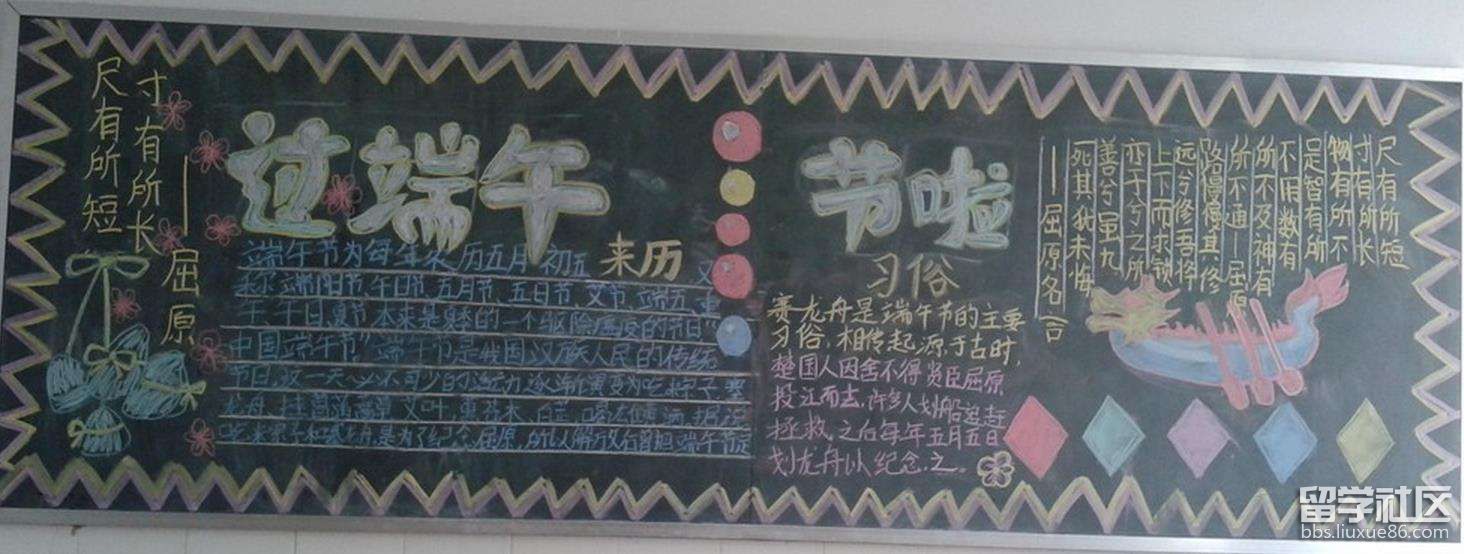 尺有所短
寸有所长
——屈原
过端午
节啦
来历
端午节为每年农历五月初五 又
称端阳节、午日节、五月节、五日节、艾节、端午、重
午、午日、夏节、本来是夏季的一个驱除瘟疫的节日
中国端午节" 端午节是我国汉族人民的传统
节日,这一天必不可少的活动逐渐演变为吃粽子,赛
龙舟、挂菖蒲、蒿草、艾叶,薰苍术、白芷,喝雄黄酒,据说
吃粽子和赛龙舟,是为了纪念屈原,所以解放后曾把端午节定
习俗
赛龙舟是端午节的主要
习俗,相传起源于古时,
楚国人因舍不得贤臣屈原
投江而去,许多人划船追赶
拯救,之后每年五月五日
划龙舟以纪念之。
尺有所短
寸有所长
物有所不
足智有所
不明数有
所不及神有
所不通—屈原
路慢慢其修
远兮修吾将
上下而求锁
亦于兮之所
善兮虽九
死其我未悔
——屈原名言
留学社区
bbs.liuxue86.com